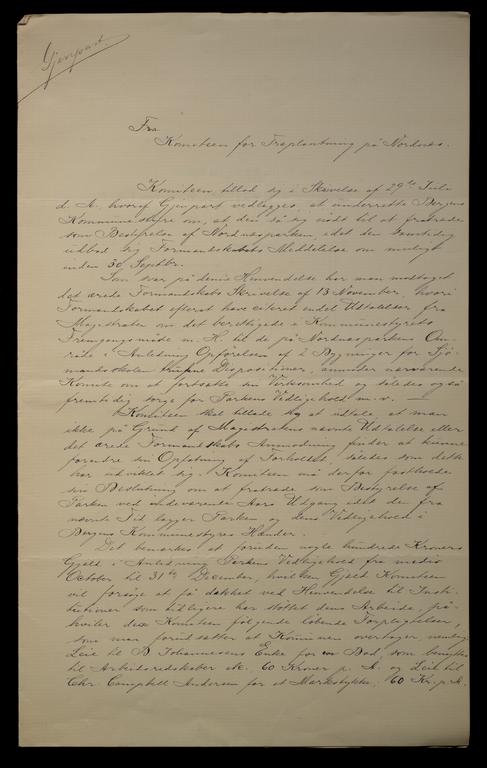 Gjenpart.
Fra
Komiteen for Træplantning på Nordnes.
Komiteen tillod sig i Skrivelse af 29de Juli
d. A., hvoraf Gjenpart vedlægges, at underrette Bergens
Kommunestyre om, at den så sig nødt til at fratræde
som Bestyrelse af Nordnæsparken, idet den samtidig
udbad sig Formandskabets Meddelelse om muligt
inden 30 Septbr.
Som svar på denne Henvendelse har man modtaget
det ærede Formandskabs Skrivelse af 13 November, hvori
Formandskabet efterat have citeret endel Udtalelser fra
Magistraten om det berettigede i Kommunestyrets
Fremgangsmåde m. H. til de på Nordnæsparkens Om-
råde i Anledning Opførelsen af 2 Bygninger for Sjø-
mandsskolen Dispositioner, anmoder nærværende
Komite om at fortsætte sin Virksomhed og således også
fremtidig sørge for Parkens Vedligehold m. v. —
Komiteen skal tillade sig at udtale, at man
ikke på Grund af Magistratens nævnte Udtalelse eller
det ærede Formandskabs Anmodning finder at kunne
forandre sin Opfatning af Forholdet, således som dette
har udviklet sig. Komiteen må derfor fastholde
sin Beslutning om at fratræde som Bestyrelse af
Parken ved indeværende Aars Udgang idet den fra
nævnte Tid lægger Parken og dens Vedligehold i
Bergens Kommunestyres Hænder.
Det bemærkes at foruden nogle hundrede Kroners
Gjeld i Anledning Parkens Vedligehold fra medio
October til 31te December, hvilken Gjeld Komiteen
vil forsøge at få dækket ved Henvendelse til Insti-
tutioner som tidligere har støttet dens Arbeide, på-
hviler der Komiteen følgende løbende Forpligtelser,
som man forudsætter at Kommunen overtager nemlig
Leie til B Johannessens Enke for en Bod, som benyttes
til Arbeidsredskaber Kr. 60 Kroner p. A. og Leie til
Chr. Campbell Andersen for et Markestykke, 60 Kr. p. A.